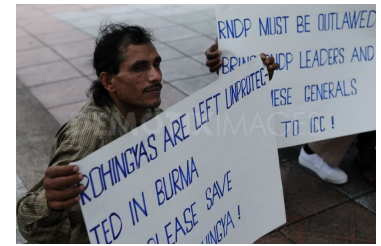 RNDP MUST BE OUTLAWED
BRING RNDP LEADERS AND
ESE GENERALS
TO ICC !
ROHINGYAS ARE LEFT UNPROTEC-
TED IN BURNA
PLEASE SAVE
HINGYA !
DEMOTIX IMAGES